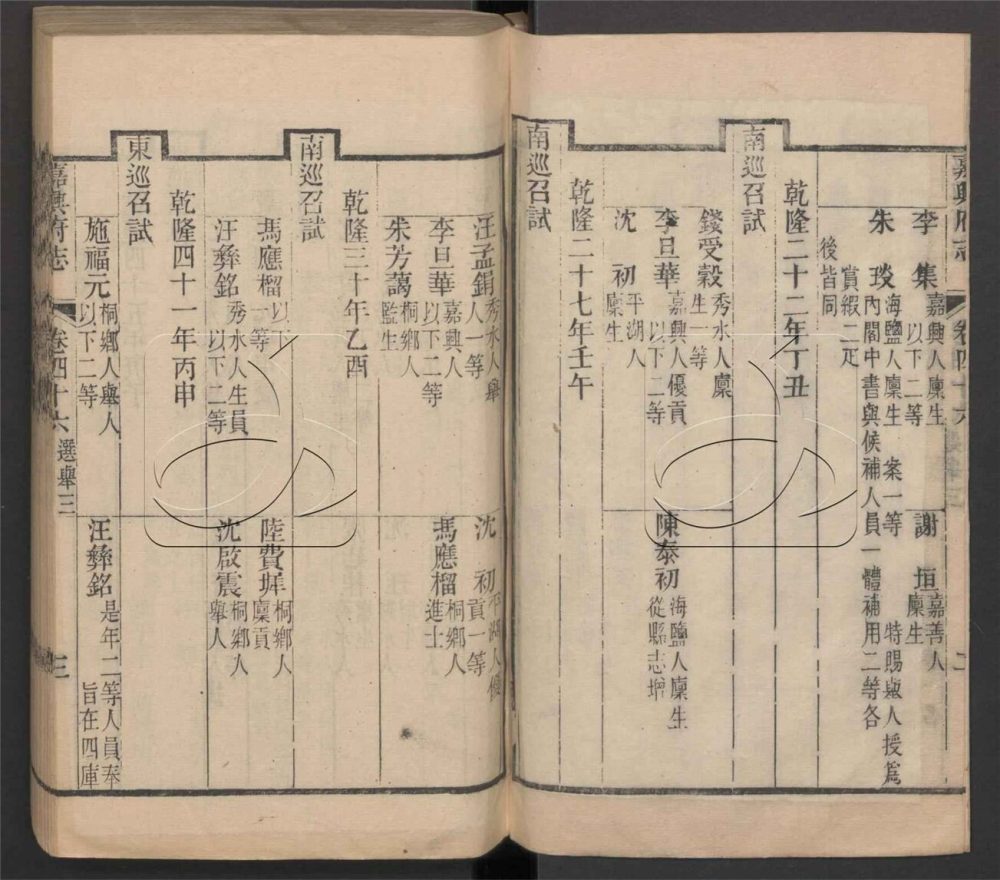 嘉興府志 卷四十六 二
李集 嘉興人廩生以下二等
謝垣 嘉善人廩生
朱琰 海鹽人廩生
案一等特賜舉人授爲內閣中書與候補人員一體補用二等各賞緞二疋後皆同
南巡召試
乾隆二十二年丁丑
錢受穀 秀水人廩生一等
李旦華 嘉興人優貢以下二等
陳泰初 海鹽人廩生從縣志增
沈初 平湖人廩生
南巡召試
乾隆二十七年壬午
汪孟鋗 秀水人舉人一等
沈初 平湖人優貢一等
李旦華 嘉興人以下二等
馮應榴 桐鄉人進士
朱芳藹 桐鄉人監生
南巡召試
乾隆三十年乙酉
馮應榴 以下一等
陸費墀 桐鄉人廩貢
汪彝銘 秀水人生員以下二等
沈啟震 桐鄉人舉人
東巡召試
乾隆四十一年丙申
施福元 桐鄉人舉人以下二等
汪彝銘 是年二等人員奉旨在四庫
嘉興府志 卷四十六 選舉三 三